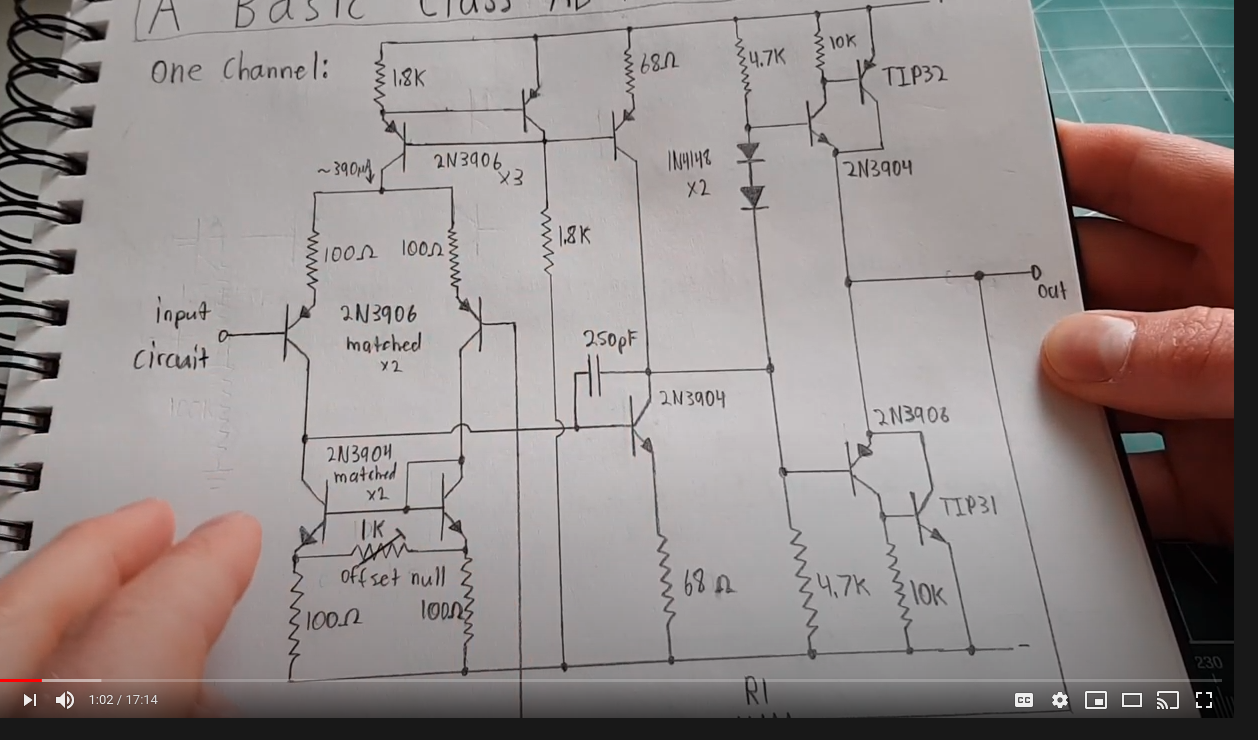 A Basic Class AB
One Channel:
1.8K
68Ω
4.7K
10K
TIP32
~390µA
2N3906
x3
1N4148
x2
2N3904
100Ω
100Ω
1.8K
out
input
circuit
2N3906
matched
x2
250pF
2N3904
2N3906
2N3904
matched
x2
1K
offset null
TIP31
100Ω
100Ω
68Ω
4.7K
10K
-
R1
230
1:02 / 17:14
CC